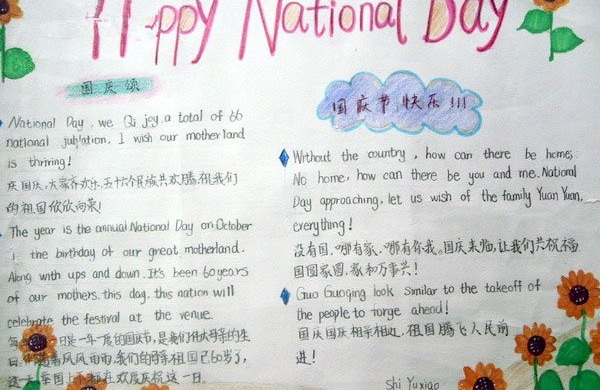 Happy National Day
国庆颂
National Day, we Qi joy a total of 60
national jublation, I wish our motherland
is thriving!
庆国庆,大家齐欢乐,五十六个民族共欢腾,祖我们
的祖国欣欣向荣!
The year is the annual National Day on October
1 the birthday of our great motherland.
Along with ups and down. It's been 60 years
of our mothers, this day, this nation will
celebrate the festival at the venue.
日是一年一度的国庆节,是我们伟大母亲的生
风风雨雨,我们的母亲祖国已60岁了,
在欢度庆祝这一日.
国庆节快乐!!!
Without the country, how can there be home;
No home, how can there be you and me. National
Day approaching, let us wish of the family Yuan Yuan,
everything!
没有国,哪有家、哪有你我。国庆来临,让我们共祝福
国圆家圆,家和万事兴!
Guo Guoqing look similar to the takeoff of
the people to forge ahead!
国庆国庆相亲相迎,祖国腾飞人民前
进!
Shi Yuxiao